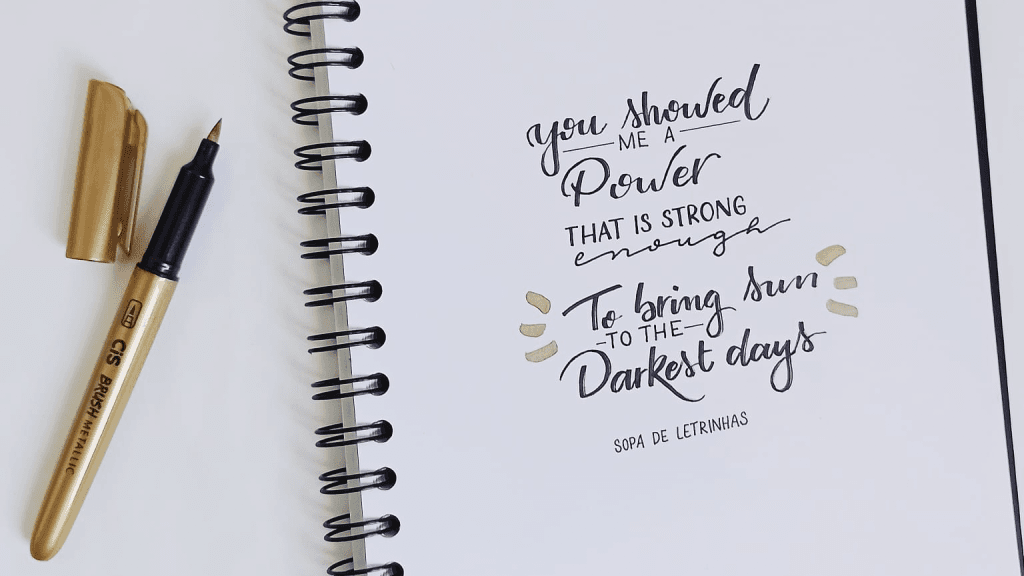 you showed
ME A
Power
THAT IS STRONG
enough
To bring sun
-TO THE-
Darkest days
SOPA DE LETRINHAS
CiS BRUSH METALLIC